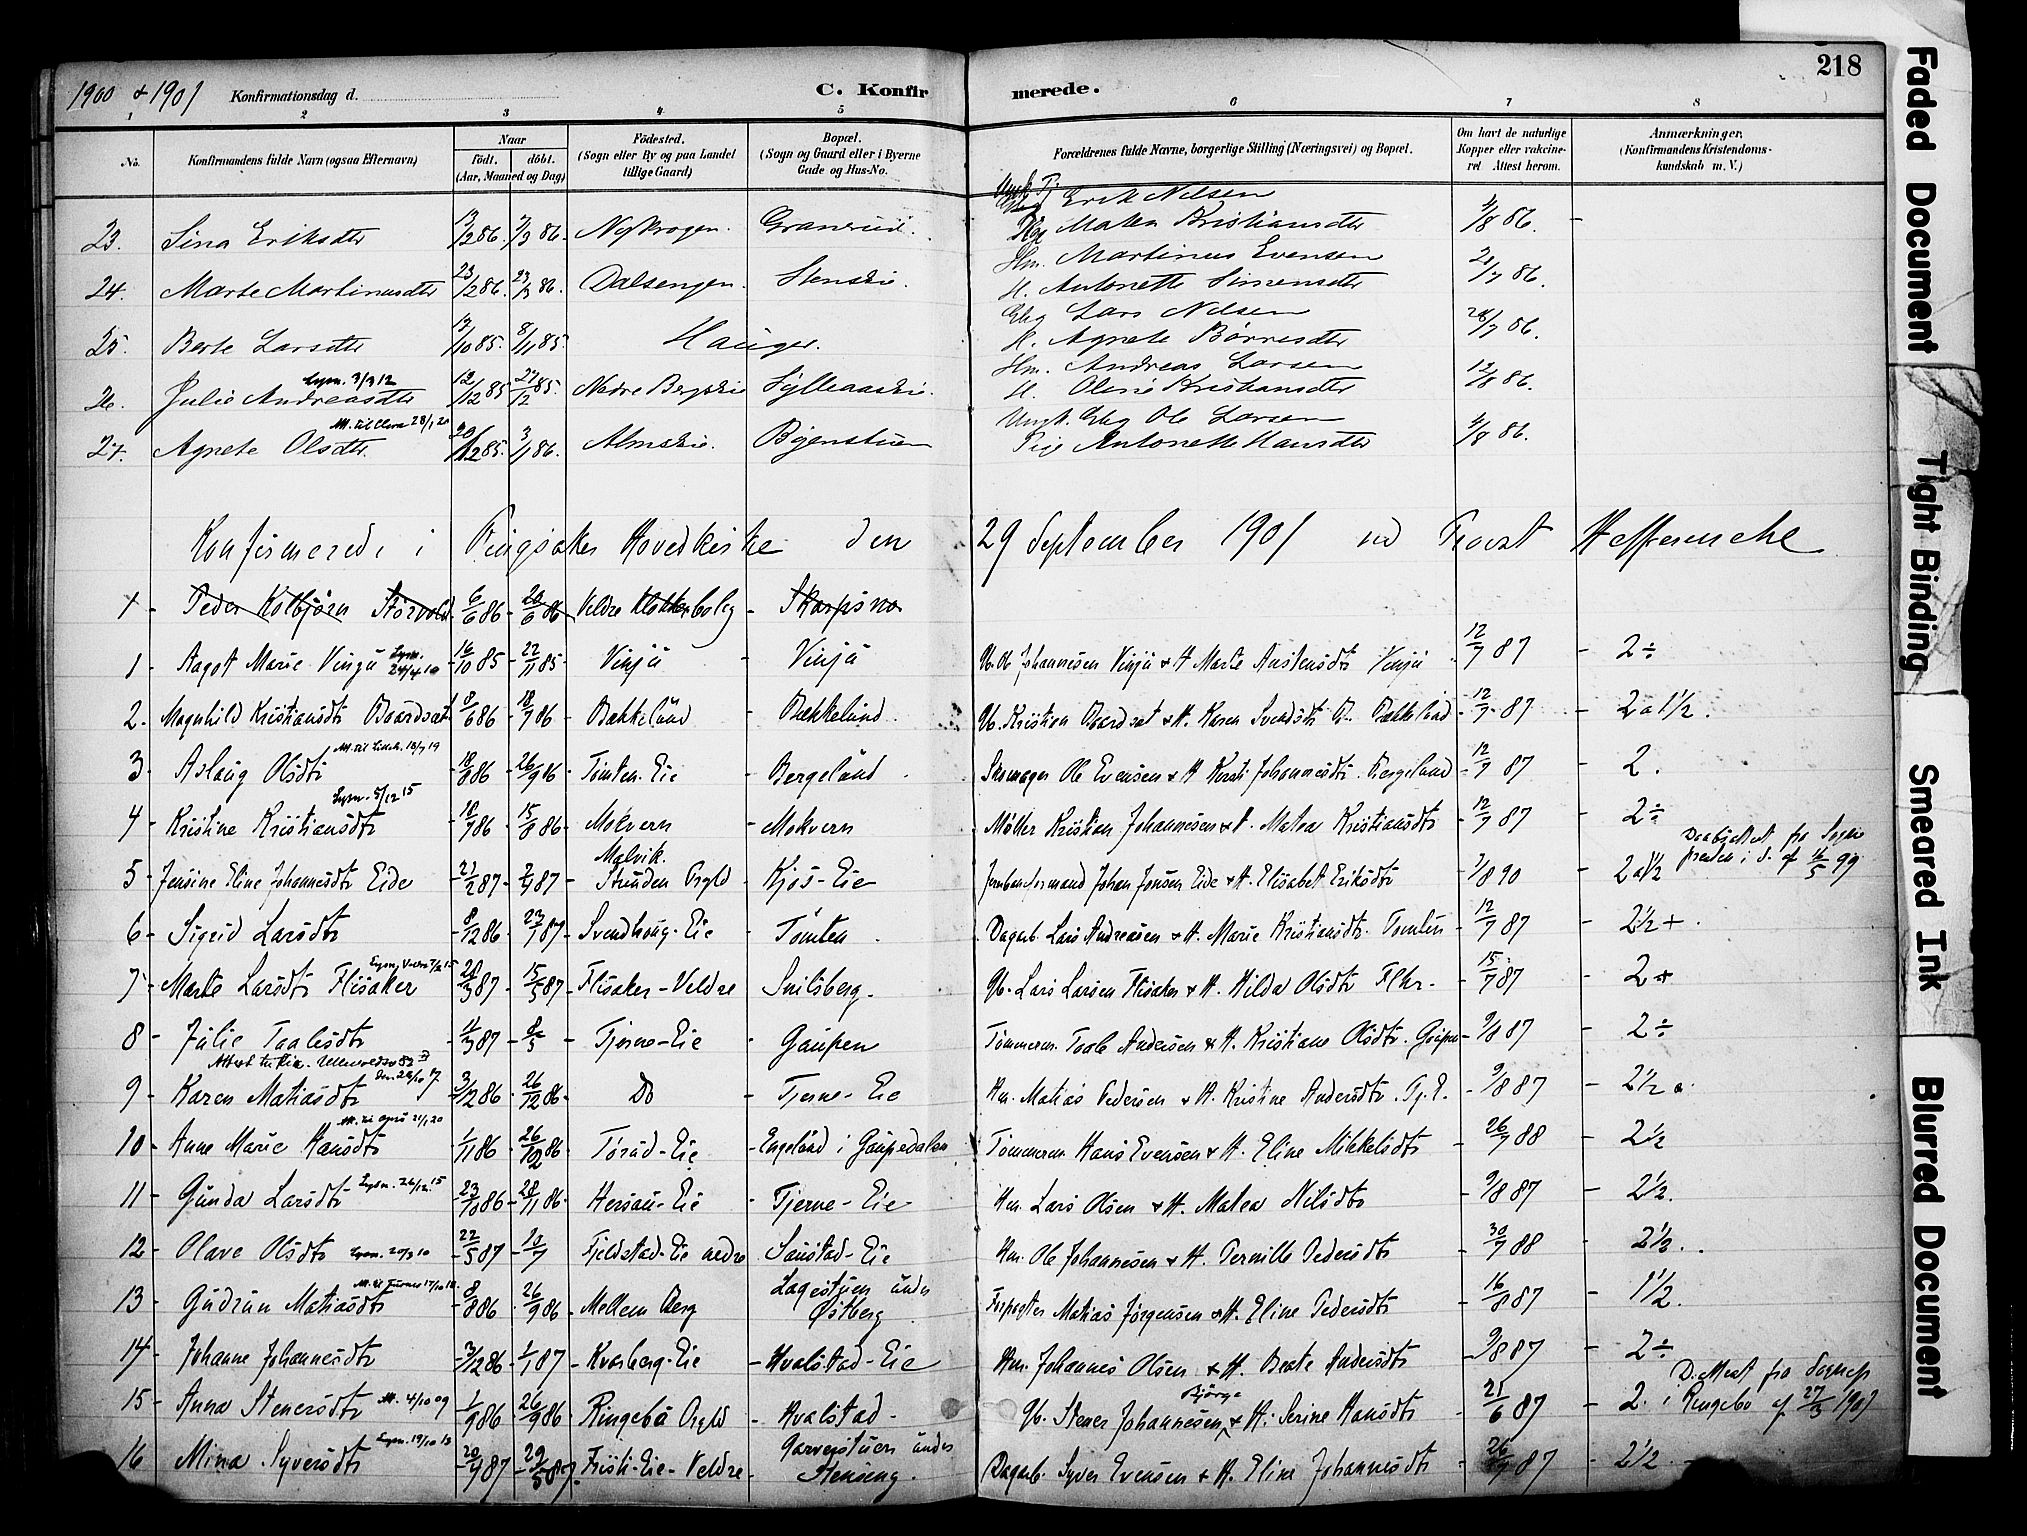 1900 & 1901 Konfirmationsdag d. C. Konfirmerede. 218
1 2 3 4 5 6 7 8
No. Konfirmandens fulde Navn (ogsaa Efternavn) Naar født. døbt. (Aar, Maaned og Dag) Fødested. (Sogn eller By og paa Landet tillige Gaard) Bopæl. (Sogn og Gaard eller i Byerne Gade og Hus-No. Forældrenes fulde Navne, borgerlige Stilling (Næringsvei) og Bopæl. Om havt de naturlige Kopper eller vakcineret Attest herom. Anmærkninger. (Konfirmandens Kristendomskundskab m. V.)
Ungk. Erik Nilsen
23. Sina Eriksdtr 86. 86. Nykrogen. Granerud. Pige Matea Kristiansdtr 4/8 86. -
Hm. Martinus Evensen
24. Marte Martinusdtr 23/2 86. 23/3 86. Dalsengen. Stenskie. H. Antonette Simensdtr 21/7 86.
Gbg Lars Nilsen
25. Berte Larsdtr 13/10 85. 8/11 85. Hauger. H. Agnete Børresdtr 28/7 86.
Lysn. 3/3 12 Hm. Andreas Larsen
26. Julie Andreasdtr 12/12 85 27/12 85. Nedre Bergskie H. Oline Kristiansdtr 12/8 86.
Att. til Elver. 28/1 20 Ungk. Gbg Ole Larsen
27. Agnete Olsdtr. 20/12 85. 3/1 86. Almskie. Bjenstuen Pige Antonette Hansdtr 4/8 86.
Konfirmerede i Ringsaker Hovedkirke den 29 September 1901 ved Provst Heffermehl
1 - Peder Kolbjørn Storvold 6/6 86 - 20/6 86 - Veldre Klokkerbolig - Skarpsno
1 - Aagot Marie Vinju Lysn. 24/4 10 16/10 85 - 22/11 85 - Vinju - Vinju Gb. Ole Johannesen Vinju & H. Marte Austensdtr Vinju 12/7 87 - 2÷
2 - Magnhild Kristiansdtr Baardset 8/6 86 - 18/7 86 - Bækkelund - Bækkelund. Gb. Kristian Baardset & H. Karen Svendsdtr B. Bækkelund - 12/7 87 - 2 a 1½.
Att. til Lilleh. 18/7 19
3 - Aslaug Olsdtr - 18/8 86 - 26/9 86 - Tømten-Eie - Bergelund Skomager Ole Evensen & H. Kersti Johannesdtr. Bergelund - 12/7 87 - 2.
Lysn. 5/12 15
4 - Kristine Kristiansdtr - 18/7 86 - 15/8 86 - Mokvern - Mokvern Møller Kristian Johannesen & H. Matea Kristiansdtr - 12/7 87 - 2÷
Malvik. Daabsattest fra Sogne
5 - Jensine Eline Johannesdtr Eide - 21/2 87 - 87 - Stunden - Kjos-Eie Jernbaneformand Johan Jonsen Eide & H. Elisabet Eriksdtr - 7/8 90 - 2 a 1½ præsten i S. af 16/5 99
6 - Sigrid Larsdtr 8/12 86 - 23/1 87 - Svendhaug-Eie - Tømten. Dagarb. Lars Andreasen & H. Marie Kristiansdtr. Tomten - 12/7 87 - 2½ +
7 - Marte Larsdtr Flisaker 20/3 87 - 15/5 87 - Flisaker-Veldre Snilsberg. Gb. Lars Larsen Flisaker & H. Hilda Olsdtr Flkr. - 15/7 87 - 2+
8 - Julie Taalesdtr 4/3 87 - 8/5 - Tjerne-Eie - Gaupen Tømmerm. Taale Andersen & H. Kristiane Olsdtr. Gaupen - 9/8 87 - 2÷
9 - Karen Matiasdtr 3/12 86 - 26/12 86 - Do - Tjerne-Eie Hm. Matias Pedersen & H. Kristine Andersdtr. Tj. E. - 9/8 87 - 2½
21/1 20
10 - Anne Marie Hansdtr 1/11 86 - 26/12 86 - Torud-Eie - Engelund i Gaupedalen Tømmerm. Hans Evensen & H. Eline Mikkelsdtr - 26/7 88 - 2½
11 - Gunda Larsdtr Lysn. 26/12 15 - 23/10 86 - 28/11 86 - Hersau-Eie - Tjerne-Eie Hm. Lars Olsen & H. Matea Nilsdtr - 9/8 87 - 2½.
12 - Olave Olsdtr Lysn. 20/3 10 - 22/5 87 - 10/7 - Fjeldstad-Eie nedre - Saustad-Eie Hm. Ole Johannesen & H. Pernille Pedersdtr - 30/7 88 - 2½.
Att. til Furnes 17/10 18.
13 - Gudrun Matiasdtr 8/8 86 - 26/9 86 - Mellem Berg Lagestuen under Østberg. Forpagter Matias Jørgensen & H. Eline Pedersdtr - 16/8 87 - 1½.
14 - Johanne Johannesdtr 3/12 86 - 1/1 87 - Kvarberg-Eie - Hvalstad-Eie Hm. Johannes Olsen & H. Beate Andersdtr - 9/8 87 - 2÷
Bjørge D. Attest fra Sognep
15 - Anna Stenersdtr Att. 4/10 09 - 1/9 86 - 26/9 86 - Ringebu - Hvalstad - Gb. Stener Johannesen & H. Serine Hansdtr - 21/6 87 - 2. i Ringebo af 27/3 1901
16 - Mina Syversdtr Lysn. 19/10 13 - 20/4 87 - 29/5 87. - Fristi-Eie-Veldre Garveristuen under Stenseng. Dagarb. Syver Evensen & H. Eline Johannesdtr - 26/7 87 - 2½
Faded Document
Tight Binding
Smeared Ink
Blurred Document